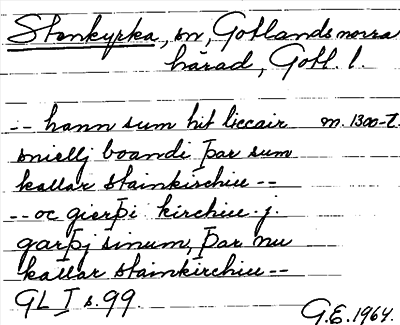 Stenkyrka, sn, Gotlands norra
härad, Gotl. l.
-- hann sum hit liccair m. 1300-t.
sniellj boandi þar sum
kallar stainkirchiu --
-- oc gierþi kirchiu j
garþj sinum, þar nu
kallar stainkirchiu --
GL I s. 99.
G.E. 1964.